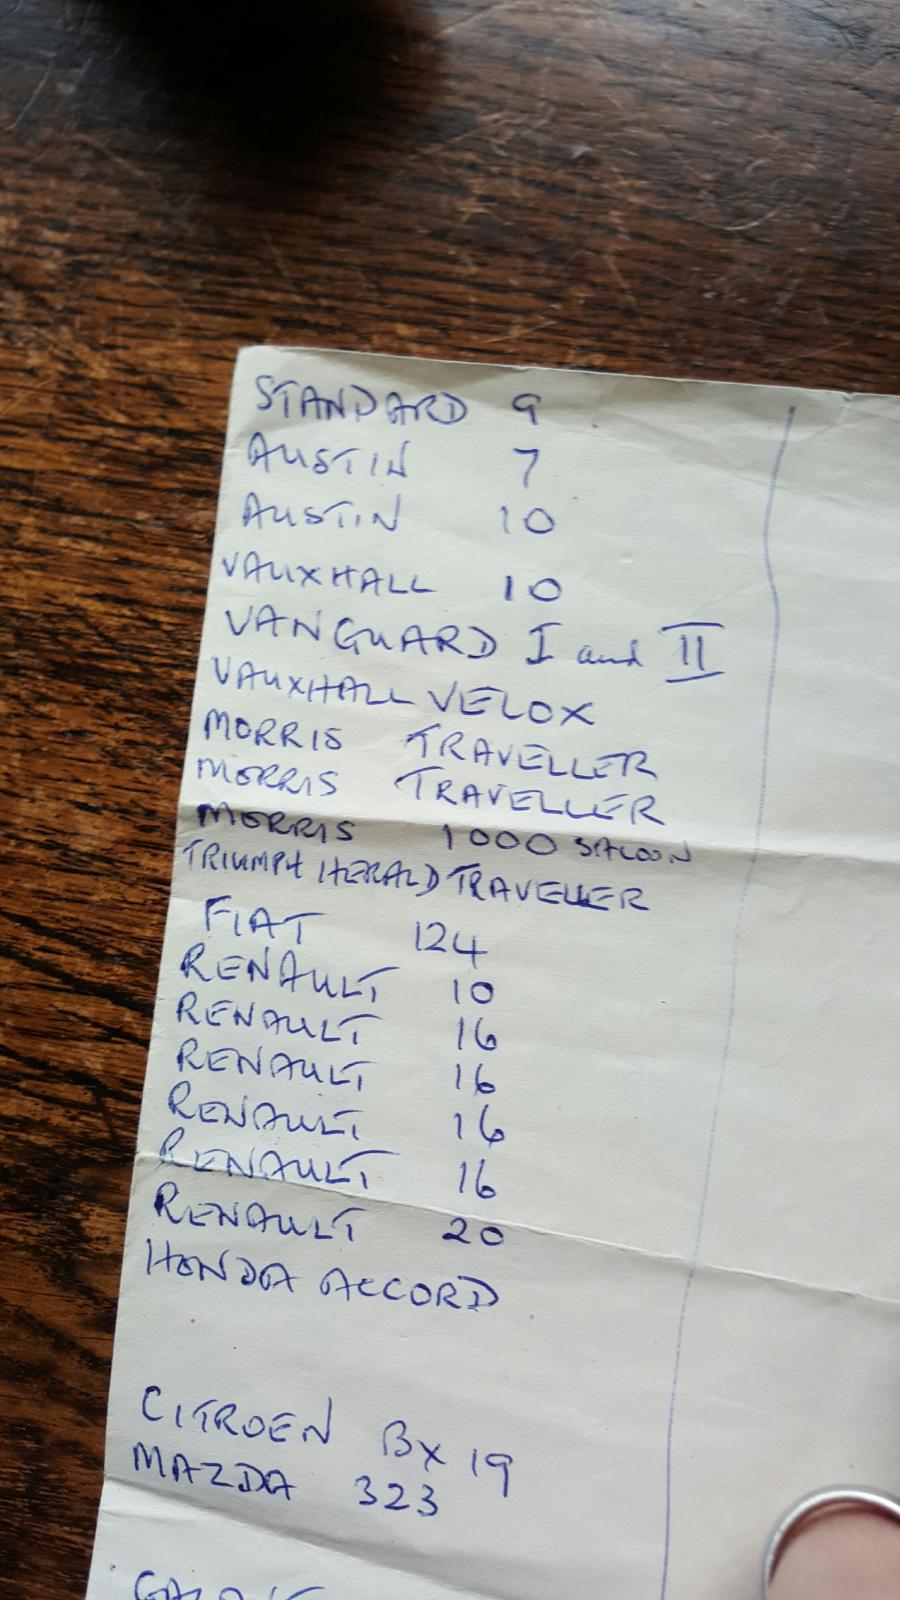 STANDARD 9
AUSTIN 7
AUSTIN 10
VAUXHALL 10
VANGUARD I and II
VAUXHALL VELOX
MORRIS TRAVELLER
MORRIS TRAVELLER
MORRIS 1000 SALOON
TRIUMPH HERALD TRAVELLER
FIAT 124
RENAULT 10
RENAULT 16
RENAULT 16
RENAULT 16
RENAULT 16
RENAULT 20
HONDA ACCORD
CITROEN BX 19
MAZDA 323